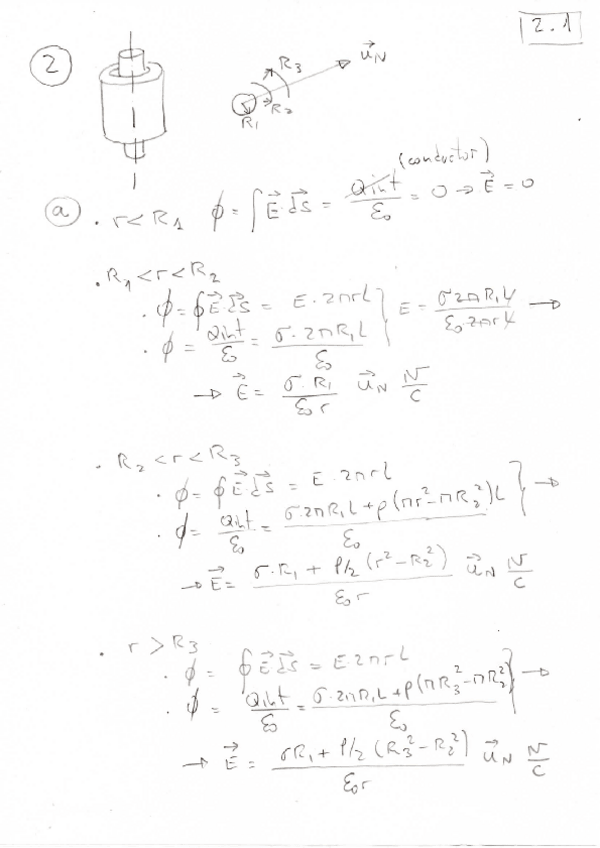 2.1
② R₃ u⃗_N
R₁ R₂
ⓐ . r < R₁ ϕ = ∫ E⃗·dS⃗ = Qint/ε₀ = 0 → E⃗ = 0 (conductor)
. R₁ < r < R₂
. ϕ = ∮ E⃗·dS⃗ = E·2πrL
. ϕ = Qint/ε₀ = σ·2πR₁L/ε₀ } E = σ2πR₁L/ε₀·2πrL →
→ E⃗ = σ·R₁/ε₀r u⃗_N N/C
. R₂ < r < R₃
. ϕ = ∮ E⃗·dS⃗ = E·2πrL
. ϕ = Qint/ε₀ = σ·2πR₁L + ρ(πr² - πR₂²)L/ε₀ } →
→ E⃗ = σ·R₁ + ρ/2 (r² - R₂²)/ε₀r u⃗_N N/C
. r > R₃
. ϕ = ∮ E⃗·dS⃗ = E·2πrL
. ϕ = Qint/ε₀ = σ·2πR₁L + ρ(πR₃² - πR₂²)/ε₀ } →
→ E⃗ = σR₁ + ρ/2 (R₃² - R₂²)/ε₀r u⃗_N N/C